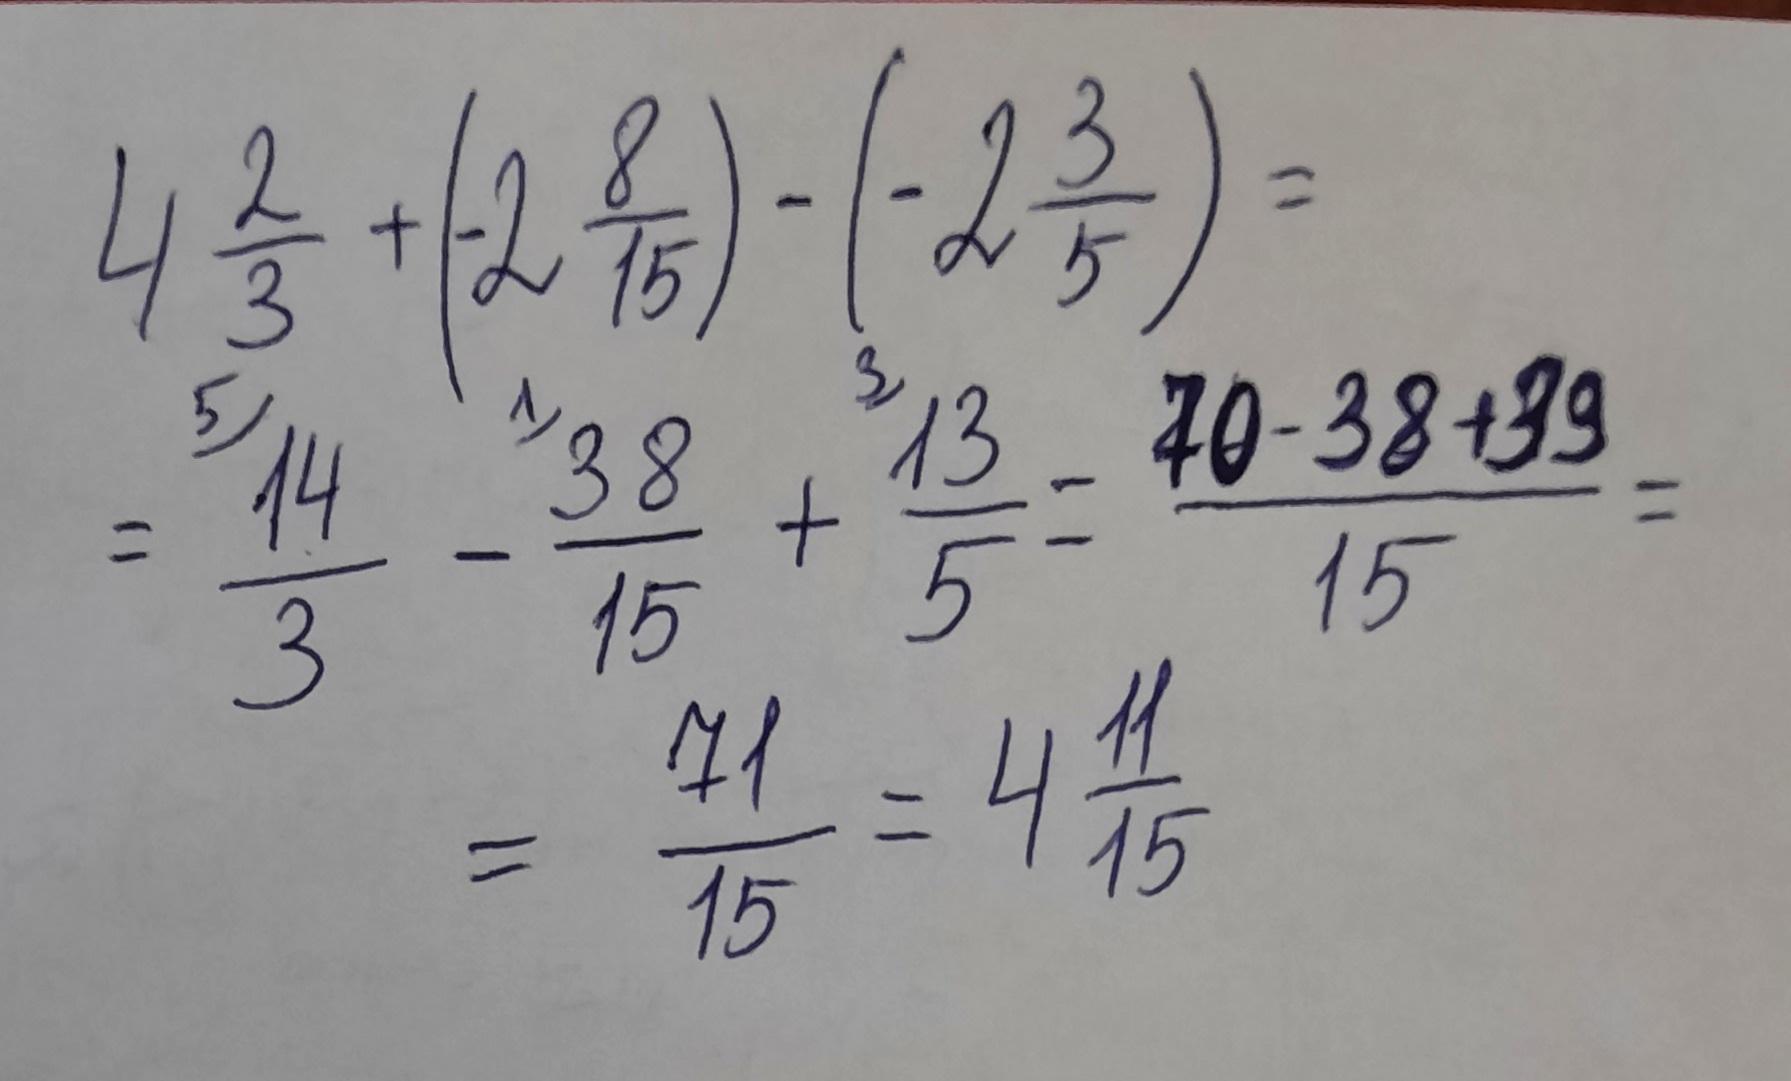 4 2/3 + (-2 8/15) - (-2 3/5) =
= 5) 14/3 - 1) 38/15 + 3) 13/5 = 70-38+39/15 =
= 71/15 = 4 11/15